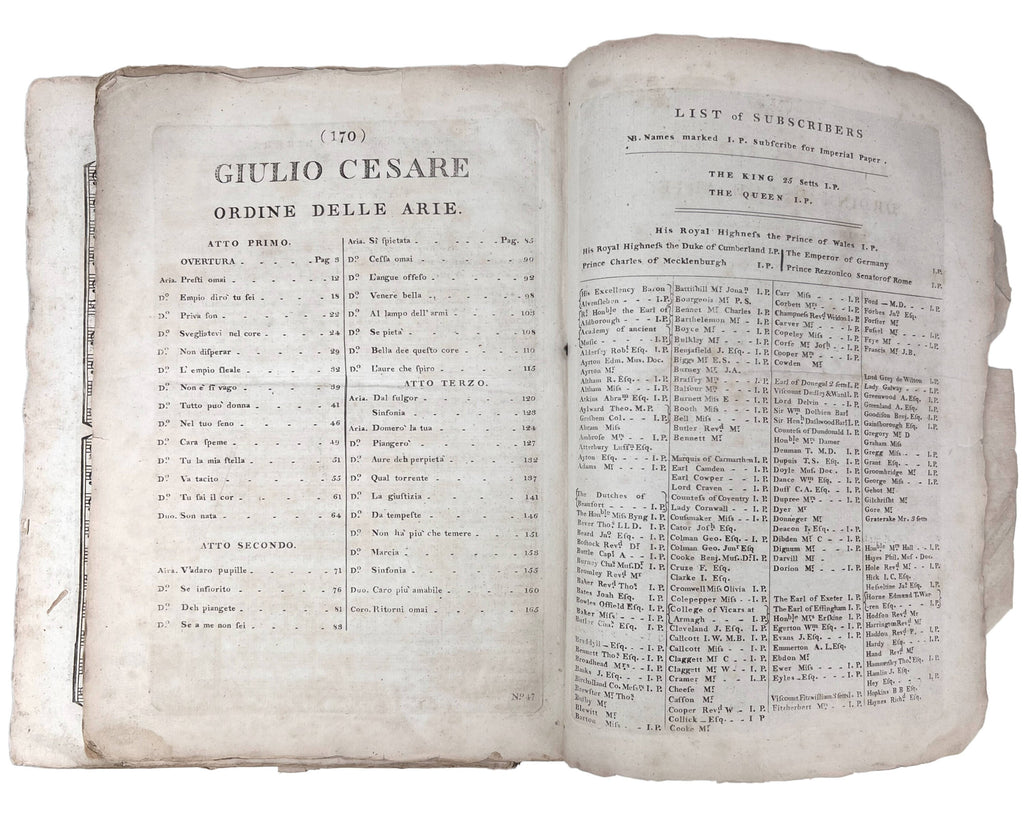 (170)
GIULIO CESARE
ORDINE DELLE ARIE.
ATTO PRIMO.
OVERTURA Pag 3
Aria. Prefti omai 12
Dº. Empio diro' tu fei 18
Dº. Priva fon 22
Dº. Svegliatevi nel core 24
Dº. Non difperar 29
Dº. L' empio fleale 32
Dº. Non e' fi vago 39
Dº. Tutto puo' donna 41
Dº. Nel tuo feno 46
Dº. Cara fpeme 49
Dº. Tu la mia ftella 51
Dº. Va tacito 55
Dº. Tu fai il cor 61
Duo. Son nata 64
ATTO SECONDO.
Aira. V'adaro pupille 71
Dº. Se infiorito 76
Dº. Deh piangete 81
Dº. Se a me non fei 83
Aria. Si fpietata Pag. 85
Dº. Ceffa omai 90
Dº. L'angue offefo 92
Dº. Venere bella 98
Dº. Al lampo dell' armi 103
Dº. Se pieta' 108
Dº. Bella dee quefto core 110
Dº. L'aure che fpiro 115
ATTO TERZO.
Aria. Dal fulgor 120
Sinfonia 123
Aria. Domero' la tua 124
Dº. Piangero' 127
Dº. Aure deh perpieta' 132
Dº. Qual torrente 137
Dº. La giuftizia 141
Dº. Da tempefte 146
Dº. Non ha' piu' che temere 151
Dº. Marcia 153
Dº. Sinfonia 155
Duo. Caro piu' amabile 160
Coro. Ritorni omai 165
Nº. 47
LIST of SUBSCRIBERS
NB. Names marked I. P. Subfcribe for Imperial Paper.
THE KING 25 Setts I.P.
THE QUEEN I.P.
His Royal Highnefs the Prince of Wales I. P.
His Royal Highnefs the Duke of Cumberland I.P.
Prince Charles of Mecklenburgh I. P.
The Emperor of Germany I.P.
Prince Rezzonico Senator of Rome I.P.
His Excellency Baron
Alvenfleben I.P.
Rt. Honble the Earl of
Aldborough I. P.
Academy of ancient
Mufic I. P.
Alderfey Robt. Efq. I. P.
Ayrton Edm. Mus. Doc.
Ayrton Mr
Altham R. Efq. I. P.
Altham Mifs I. P.
Atkins Abram Efq. I. P.
Aylward Theo. M. P.
Grefham Col. I. P.
Abram Mifs
Ambrofe Mrs I. P.
Atterbury Luffm Efq.
Ayton Efq. I. P.
Adams Mr I. P.
The Dutches of
Beaufort I. P.
The Honble Mifs Byng I. P.
Bever Thos. LL D. I. P.
Beard Jas. Efq. I. P.
Boftock Revd Dr I. P.
Battle Capt A I. P.
Burney Chas. Muf. Dr. I. P.
Bromley Revd Mr I. P.
Baker Revd Thos. I. P.
Bates Joah Efq. I. P.
Bowles Offield Efq. I. P.
Baker Mifs I. P.
Butler Efq. I. P.
Braddyil Efq. I. P.
Bennett Thos. Efq. I. P.
Broadhead Mrs I. P.
Banks J. Efq. I. P.
Birchalland Co. Mefsrs I. P.
Brewfter Mr Thos.
Bufby Mr
Blewitt Mr
Barton Mifs I. P.
Battifhill Mr Jonan. I. P.
Bourgeois Mr P. S.
Bennet Mr Charles I. P.
Barthelemon Mr I. P.
Boyce Mr I. P.
Bulkley Mr I. P.
Benjafield J. Efq. I. P.
Biggs Mr E. S. I. P.
Burney Mr. J.A.
Braffey Mrs I. P.
Balfour Mrs I. P.
Burnett Mifs E I. P.
Booth Mifs I. P.
Bell Mifs I. P.
Butler Revd Mr
Bennett Mr
Marquis of Carmarthen I. P.
Earl Camden I. P.
Earl Cowper I. P.
Lord Craven I. P.
Countefs of Coventry I. P.
Lady Cornwall I. P.
Coufmaker Mifs I. P.
Cator Jofh Efq. I. P.
Colman Geo. Efq. I. P.
Colman Geo. Junr Efq
Cooke Benj. Muf. Dr. I. P.
Cruze F. Efq.
Clarke I. Efq.
Cromwell Mifs Olivia I. P.
Colepepper Mifs I. P.
College of Vicars at
Armagh I. P.
Cleveland J. Efq. I. P.
Callcott I. W. M.B. I. P.
Callcott Mifs I. P.
Claggett Mr C I. P.
Claggett Mr W I. P.
Cramer Mr I. P.
Cheefe Mr
Caffon Mr
Cooper Revd W I. P.
Collick Efq. I P
Cooke Mr
Carr Mifs I. P.
Corbett Mrs I. P.
Champnefs Revd Weldon I. P.
Carver Mr I. P.
Copeley Mifs I. P.
Corfe Mr Jofh. I. P.
Cooper Mrs I. P.
Cowden Mr
Earl of Donegal 2 fetts I. P.
Vifcount Dudley & Ward I. P.
Lord Delvin I. P.
Sir Wm Dolbien Bart
Sir Henry Dafhwood Bart I. P.
Countefs of Dundonald I. P.
Honble Mrs Damer
Denman T. M.D. I. P.
Dupuis T.S. Efq. I. P.
Doyle Muf. Doc. I. P.
Dance Wm Efq. I. P.
Duff C.A. Efq. I. P.
Dupree Mrs I. P.
Dyer Mr
Donneger Mr
Deacon I. Efq. I. P.
Dibden Mr C I. P.
Dignum Mr I. P.
Darvill Mr I. P.
Dorion Mr I. P.
The Earl of Exeter I. P.
The Earl of Effingham I. P.
Honble Mrs Erskine I. P.
Egerton Wm Efq. I. P.
Evans J. Efq. I. P.
Emmerton A. L.Efq.
Ebdon Mr
Ewer Mifs I. P.
Eyles Efq. I. P.
Vifcount Fitzwilliam 3 fetts I. P.
Fitzherbert Mrs I. P.
Ford M.D. I. P.
Forbes Jas. Efq I. P.
Forfter Mr
Fufsel Mr I. P.
Frye Mr I. P.
Francis Mr J.B.
Lord Grey de Wilton I. P.
Lady Galway I. P.
Greenwood A. Efq. I. P.
Greenland A. Efq. I. P.
Goodifon Benj. Efq. I. P.
Gainfborough Efq. I. P.
Gregory Mr D
Graham Mifs
Gregg Mifs I. P.
Grant Efq. I. P.
Groombridge Mr I. P.
George Mifs I. P.
Gehot Mr
Gilchrift Mr
Gore Mr
Graterake Mr. 3 fetts
Honble Mrs Hall I. P.
Hayes Phil. Muf. Doc.
Hole Revd Mr I. P.
Hick I. C. Efq.
Heffeltine Jas. Efq. I. P.
Horne Edmund T. War-
-ren Efq. I. P.
Hodfon Revd Mr
Harrington Revd Mr
Haddon Revd P. I. P.
Hardy Efq. I. P.
Hand Revd Mr
Hammerfley Thos. Efq. I. P.
Hamlin J. Efq.
Hey Efq. I. P.
Hopkins B B Efq.
Haynes Richd. Efq.